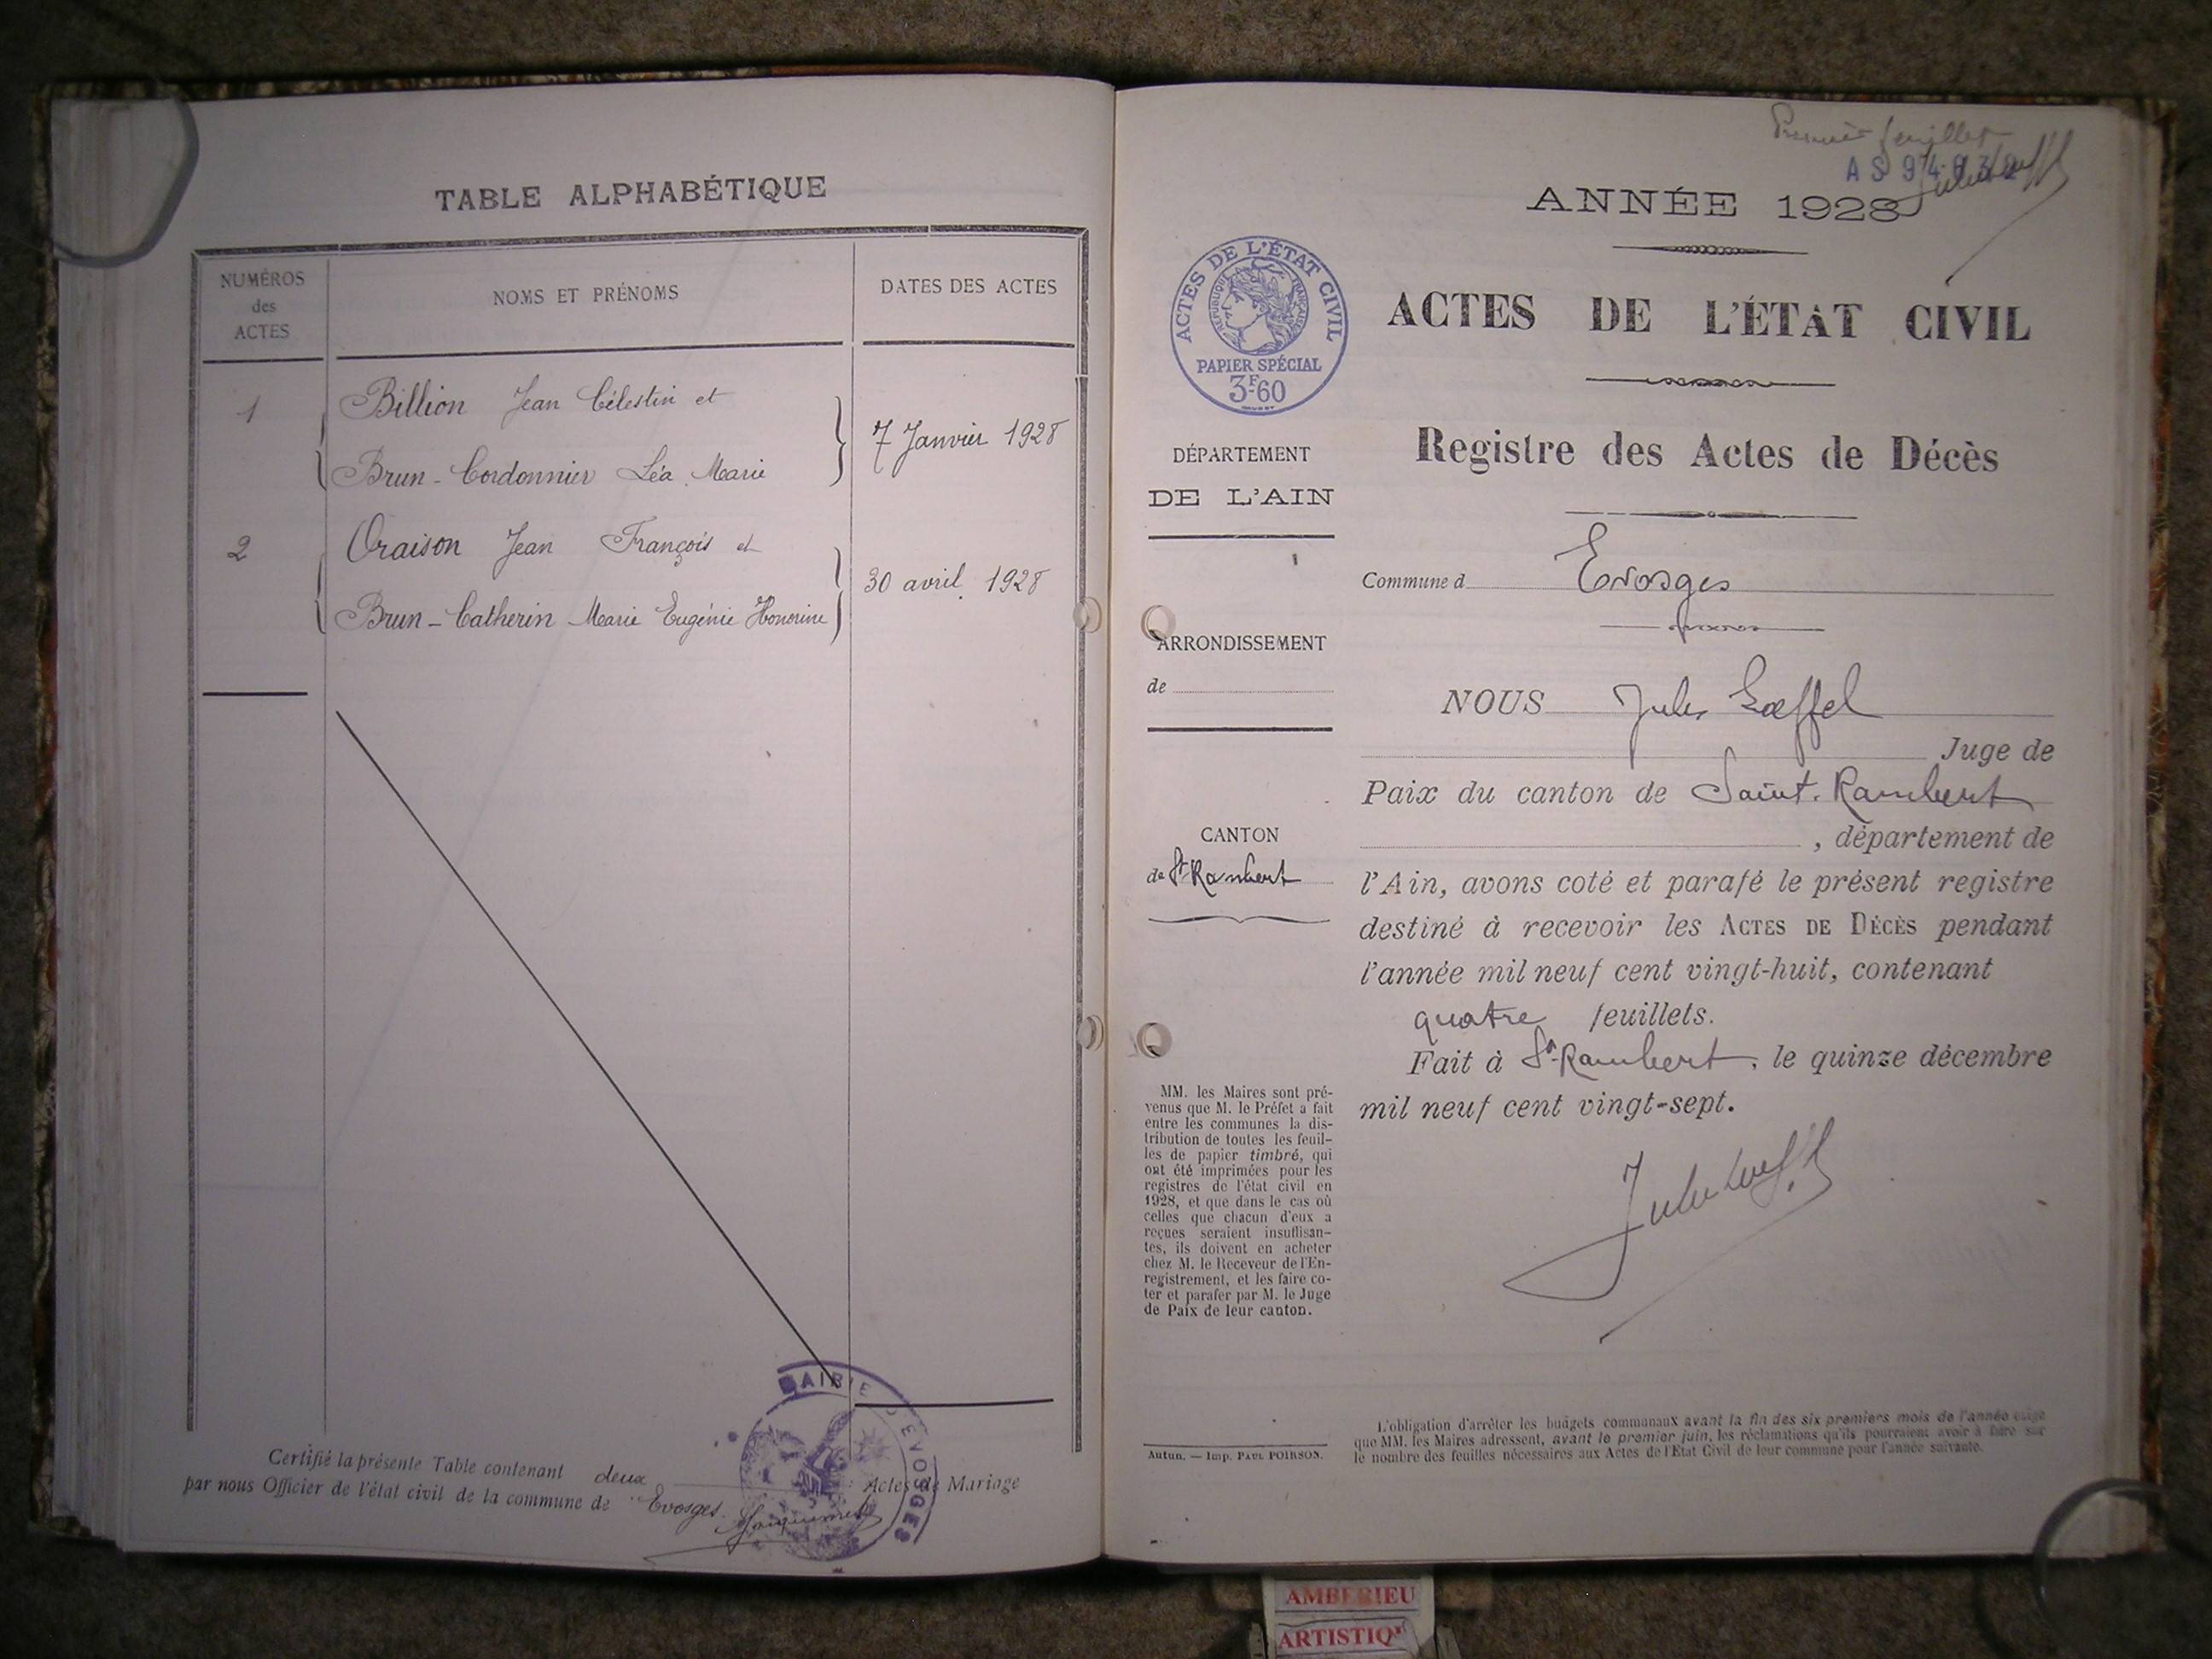 TABLE ALPHABÉTIQUE
NUMÉROS
des
ACTES
NOMS ET PRÉNOMS
DATES DES ACTES
1
Billion Jean Célestin et
Brun-Cordonnier Léa Marie
7 Janvier 1928
2
Oraison Jean François et
Brun-Catherin Marie Eugénie Honorine
30 avril 1928
Certifié la présente Table contenant deux Actes de Mariage
par nous Officier de l'état civil de la commune de Evosges.
MAIRIE D'EVOSGES
Premier feuillet
ANNÉE 1928
ACTES DE L'ÉTAT CIVIL
RÉPUBLIQUE FRANÇAISE
PAPIER SPÉCIAL
3F60
ACTES DE L'ÉTAT CIVIL
Registre des Actes de Décès
DÉPARTEMENT
DE L'AIN
Commune d Evosges
ARRONDISSEMENT
de
CANTON
de St Rambert
NOUS Jules Loeffel
Juge de
Paix du canton de Saint-Rambert
, département de
l'Ain, avons coté et parafé le présent registre
destiné à recevoir les ACTES DE DÉCÈS pendant
l'année mil neuf cent vingt-huit, contenant
quatre feuillets.
Fait à St-Rambert, le quinze décembre
mil neuf cent vingt-sept.
MM. les Maires sont pré-
venus que M. le Préfet a fait
entre les communes la dis-
tribution de toutes les feuil-
les de papier timbré, qui
ont été imprimées pour les
registres de l'état civil en
1928, et que dans le cas où
celles que chacun d'eux a
reçues seraient insuffisan-
tes, ils doivent en acheter
chez M. le Receveur de l'En-
registrement, et les faire co-
ter et parafer par M. le Juge
de Paix de leur canton.
Autun. — Imp. PAUL POIRSON.
L'obligation d'arrêter les budgets communaux avant la fin des six premiers mois de l'année exige
que MM. les Maires adressent, avant le premier juin, les réclamations qu'ils pourraient avoir à faire sur
le nombre des feuilles nécessaires aux Actes de l'Etat Civil de leur commune pour l'année suivante.
AMBERIEU
ARTISTIQ